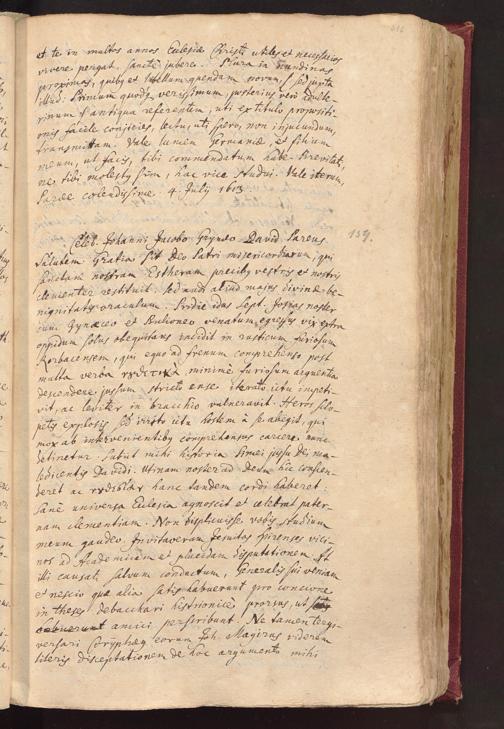 et te in multos annos Ecclesiae Christi utilem et necessarium
vivere pergat. Sancte jubere. Plura in nundinas
proximas, quibus et libellum quendam novum, (sed juxta
illud: Primum quodque verissimum, posterius vero adulte-
rinum) antiqua referentem, uti ex titulo propositi-
onis facile conjicies, lectu, uti spero, non injucundum,
transmittam. Vale lumen Germaniae, et filium
meum, ut facis, tibi commendatum habe. Brevitati,
ne tibi molestus sim, hac vice studui. Vale iterum,
Paree colendissime 4 July 1613
159.
Celeb. Johanni Jacobo Grynaeo David Pareus
Salutem. Gratia sit Deo Patri misericordiarum, qui
nostram Estheram precibus vestris et nostris
clementer restituit. Sed audi aliud majus divinae be-
nignitatis oraculum. Pridie idus Sept. noster
cum Gynaeceo et venatum egressus vix extra
oppidum solus obequitans incidit in rusticum furiosum
Korbacensem, qui equo ad frenum comprehenso post
multa verba minime furiosum arguentia
descendere jussum stricto ense iterato ictu impeti-
vit, ac leviter in bracchio vulneravit. Heros sclo-
peto explosis sed irrito ictu hostem a se abegit, qui
mox ab intervenientibus comprehensus carcere nunc
detinetur. Subit mihi historia Simei jussu Dei ma-
ledicentis Davidi. Utinam noster ad Deum hic confu-
deret ac hanc tandem cordi haberet.
Sane universa Ecclesia agnoscit et celebrat pater-
nam clementiam. Non displicuisse vobis studium
meum gaudeo. Invitaveram Jesuitas Spirenses vici-
nos ad Academicam et placidam disputationem. At
illi causati salvum conductum, Generalis sui veniam
et nescio quae alia satis habuerunt pro concione
in theses debacchari histrionice prorsus, ut
amici perscribunt. Ne tamen tergi-
versari Coryphaeus eorum Joh. Magirus videretur
literis disceptationem de hoc argumento mihi